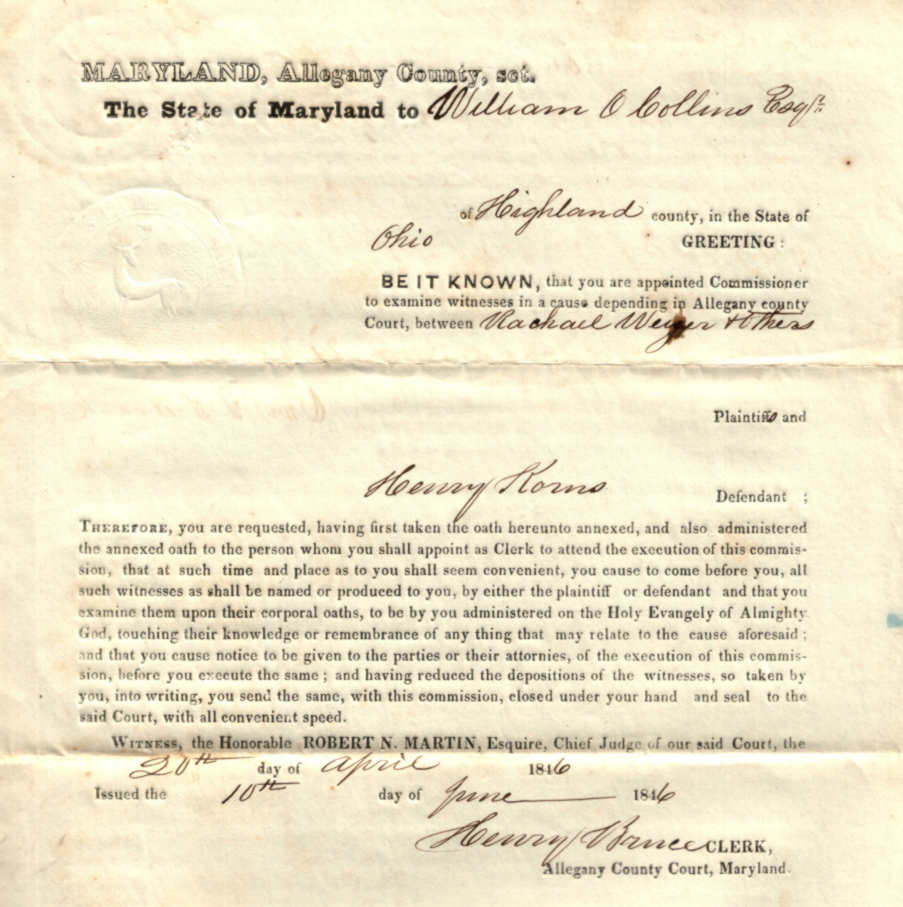 MARYLAND, Allegany County, sct.
The State of Maryland to William O Collins Esqr.
of Highland county, in the State of
Ohio GREETING:
BE IT KNOWN, that you are appointed Commissioner
to examine witnesses in a cause depending in Allegany county
Court, between Rachael & Others
Plaintiffs and
Henry Korns Defendant ;
THEREFORE, you are requested, having first taken the oath hereunto annexed, and also administered
the annexed oath to the person whom you shall appoint as Clerk to attend the execution of this commis-
sion, that at such time and place as to you shall seem convenient, you cause to come before you, all
such witnesses as shall be named or produced to you, by either the plaintiff or defendant and that you
examine them upon their corporal oaths, to be by you administered on the Holy Evangely of Almighty
God, touching their knowledge or remembrance of any thing that may relate to the cause aforesaid ;
and that you cause notice to be given to the parties or their attornies, of the execution of this commis-
sion, before you execute the same ; and having reduced the depositions of the witnesses, so taken by
you, into writing, you send the same, with this commission, closed under your hand and seal to the
said Court, with all convenient speed.
WITNESS, the Honorable ROBERT N. MARTIN, Esquire, Chief Judge of our said Court, the
20th day of April 1846
Issued the 10th day of June 1846
Henry Bruce CLERK,
Allegany County Court, Maryland.